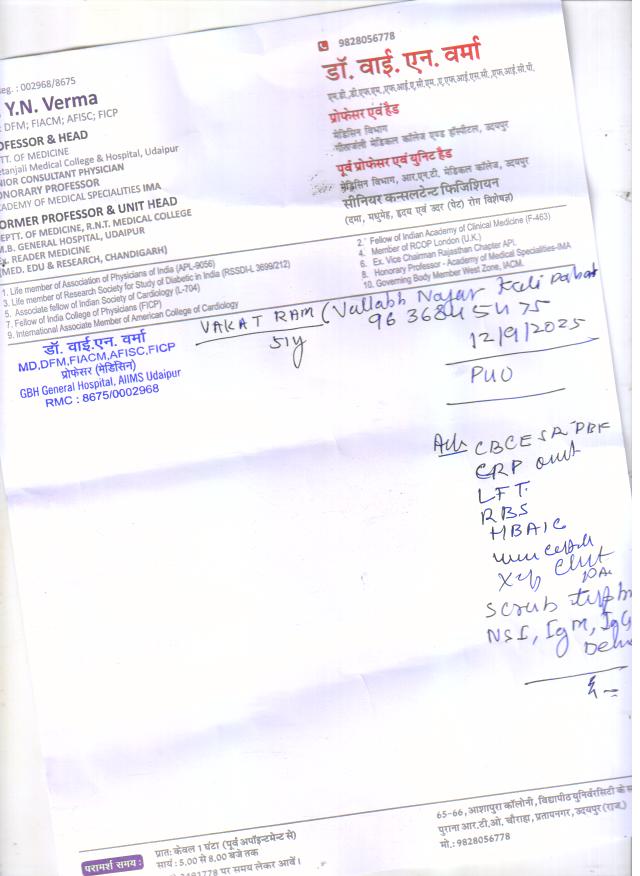 eg. : 002968/8675
Y.N. Verma
DFM; FIACM; AFISC; FICP
OFESSOR & HEAD
PTT. OF MEDICINE
etanjali Medical College & Hospital, Udaipur
NIOR CONSULTANT PHYSICIAN
ONORARY PROFESSOR
CADEMY OF MEDICAL SPECIALITIES IMA
ORMER PROFESSOR & UNIT HEAD
DEPTT. OF MEDICINE, R.N.T. MEDICAL COLLEGE
M.B. GENERAL HOSPITAL, UDAIPUR
Ex. READER MEDICINE
(MED. EDU & RESEARCH, CHANDIGARH)
9828056778
डॉ. वाई. एन. वर्मा
एम.डी.,डी.एफ.एम.,एफ.आई.ए.सी.एम.,ए.एफ.आई.एस.सी.,एफ.आई.सी.पी.
प्रोफेसर एवं हैड
मेडिसिन विभाग
गीतांजली मेडिकल कॉलेज एण्ड हॉस्पीटल, उदयपुर
पूर्व प्रोफेसर एवं युनिट हैड
मेडिसिन विभाग, आर.एन.टी. मेडिकल कॉलेज, उदयपुर
सीनियर कन्सलटेन्ट फिजिशियन
(दमा, मधुमेह, हृदय एवं उदर (पेट) रोग विशेषज्ञ)
1. Life member of Association of Physicians of India (APL-9056)
3. Life member of Research Society for Study of Diabetic in India (RSSDI-L 3699/212)
5. Associate fellow of Indian Society of Cardiology (L-704)
7. Fellow of India College of Physicians (FICP)
9. International Associate Member of American College of Cardiology
2. Fellow of Indian Academy of Clinical Medicine (F-463)
4. Member of RCOP London (U.K.)
6. Ex. Vice Chairman Rajasthan Chapter API.
8. Honorary Professor - Academy of Medical Specialities-IMA
10. Governing Body Member West Zone, IACM.
डॉ. वाई.एन. वर्मा
MD,DFM,FIACM,AFISC,FICP
प्रोफेसर (मेडिसिन)
GBH General Hospital, AIIMS Udaipur
RMC : 8675/0002968
VAKAT RAM (Vallabh Nagar
51y
12/9/2025
PUO
Adv CBC ESR PBF
CRP
LFT.
RBS
HBA1C
Scrub
NS1, IgM, IgG
परामर्श समय :
प्रातः केवल 1 घंटा (पूर्व अपॉइन्टमेन्ट से)
सायं : 5.00 से 8.00 बजे तक
पर समय लेकर आवें।
65-66, आशापुरा कॉलोनी, विद्यापीठ युनिर्वरसिटी के
पुराना आर.टी.ओ. चौराहा, प्रतापनगर, उदयपुर (राज.)
मो.: 9828056778